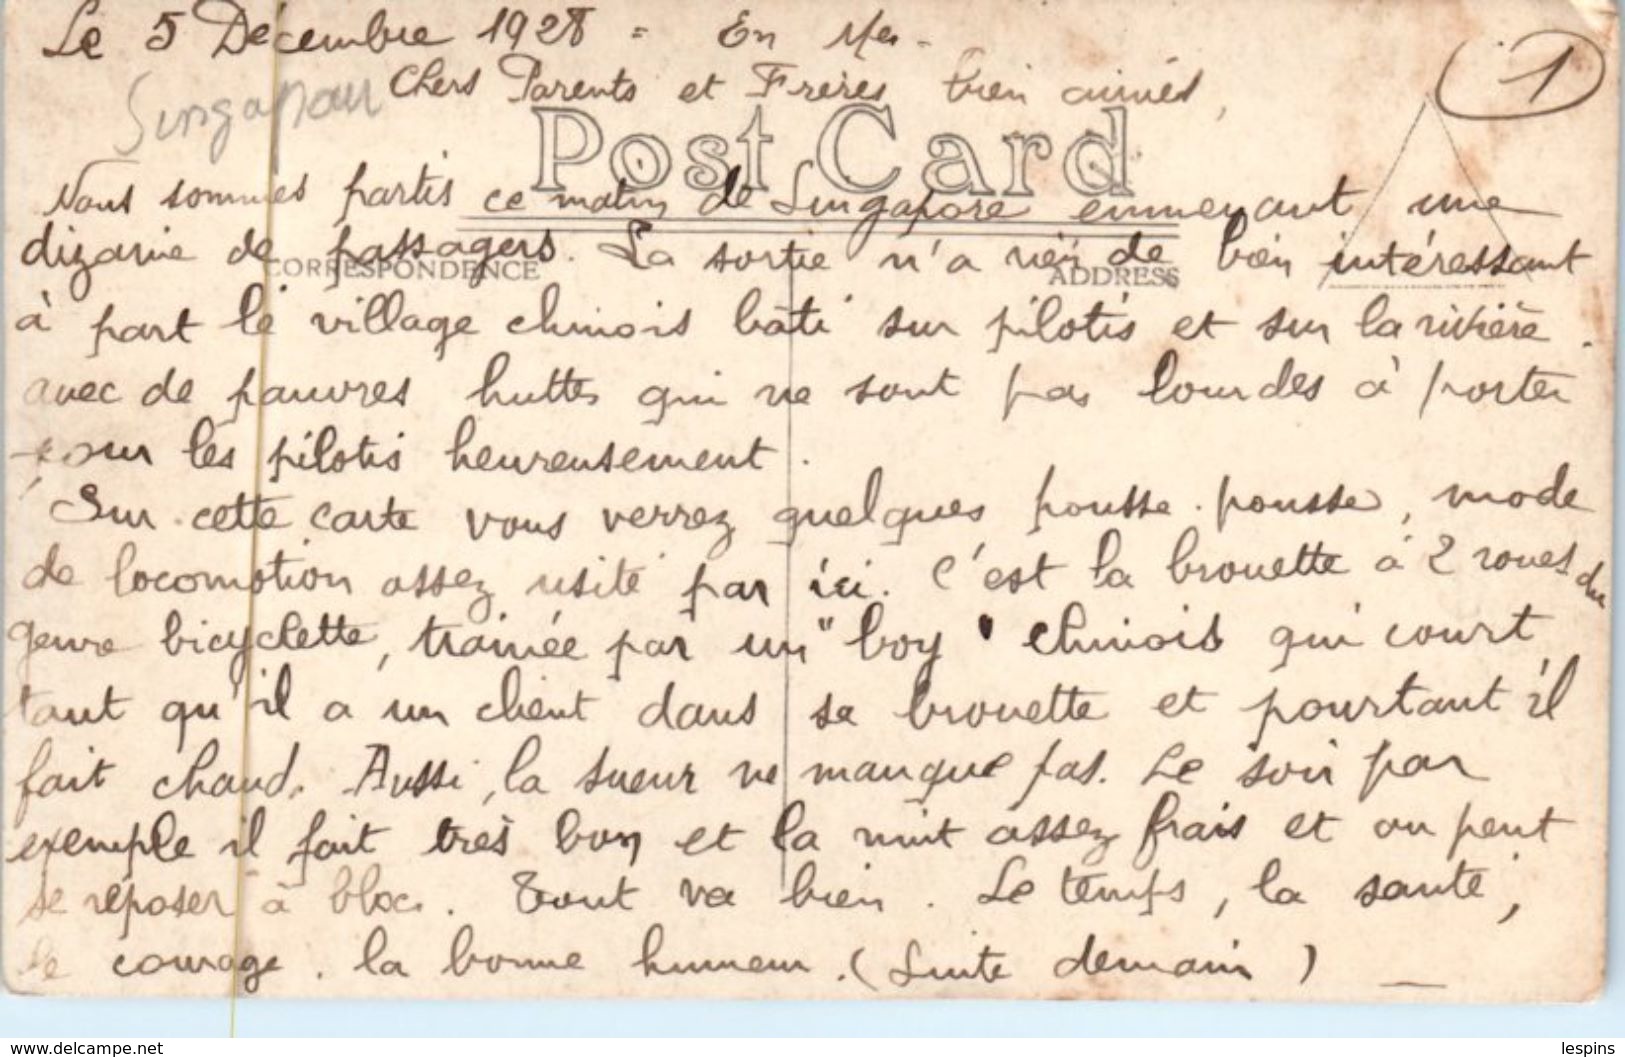 Le 5 Décembre 1928 = En Mer -
1
Singapour
Chers Parents et Frères bien aimés,
Post Card
Nous sommes partis ce matin de Singapore emmenant une
dizaine de passagers. La sortie n'a rien de bien intéressant
CORRESPONDENCE ADDRESS
à part le village chinois bâti sur pilotis et sur la rivière.
avec de pauvres huttes qui ne sont pas lourdes à porter
pour les pilotis heureusement.
Sur cette carte vous verrez quelques pousse-pousse, mode
de locomotion assez usité par ici. C'est la brouette à 2 roues du
genre bicyclette, trainée par un "boy" chinois qui court
tant qu'il a un client dans sa brouette et pourtant il
fait chaud. Aussi, la sueur ne manque pas. Le soir par
exemple il fait très bon et la nuit assez frais et on peut
se reposer à bloc. Tout va bien. Le temps, la santé,
le courage. la bonne humeur. (Suite demain) _
www.delcampe.net
lespins